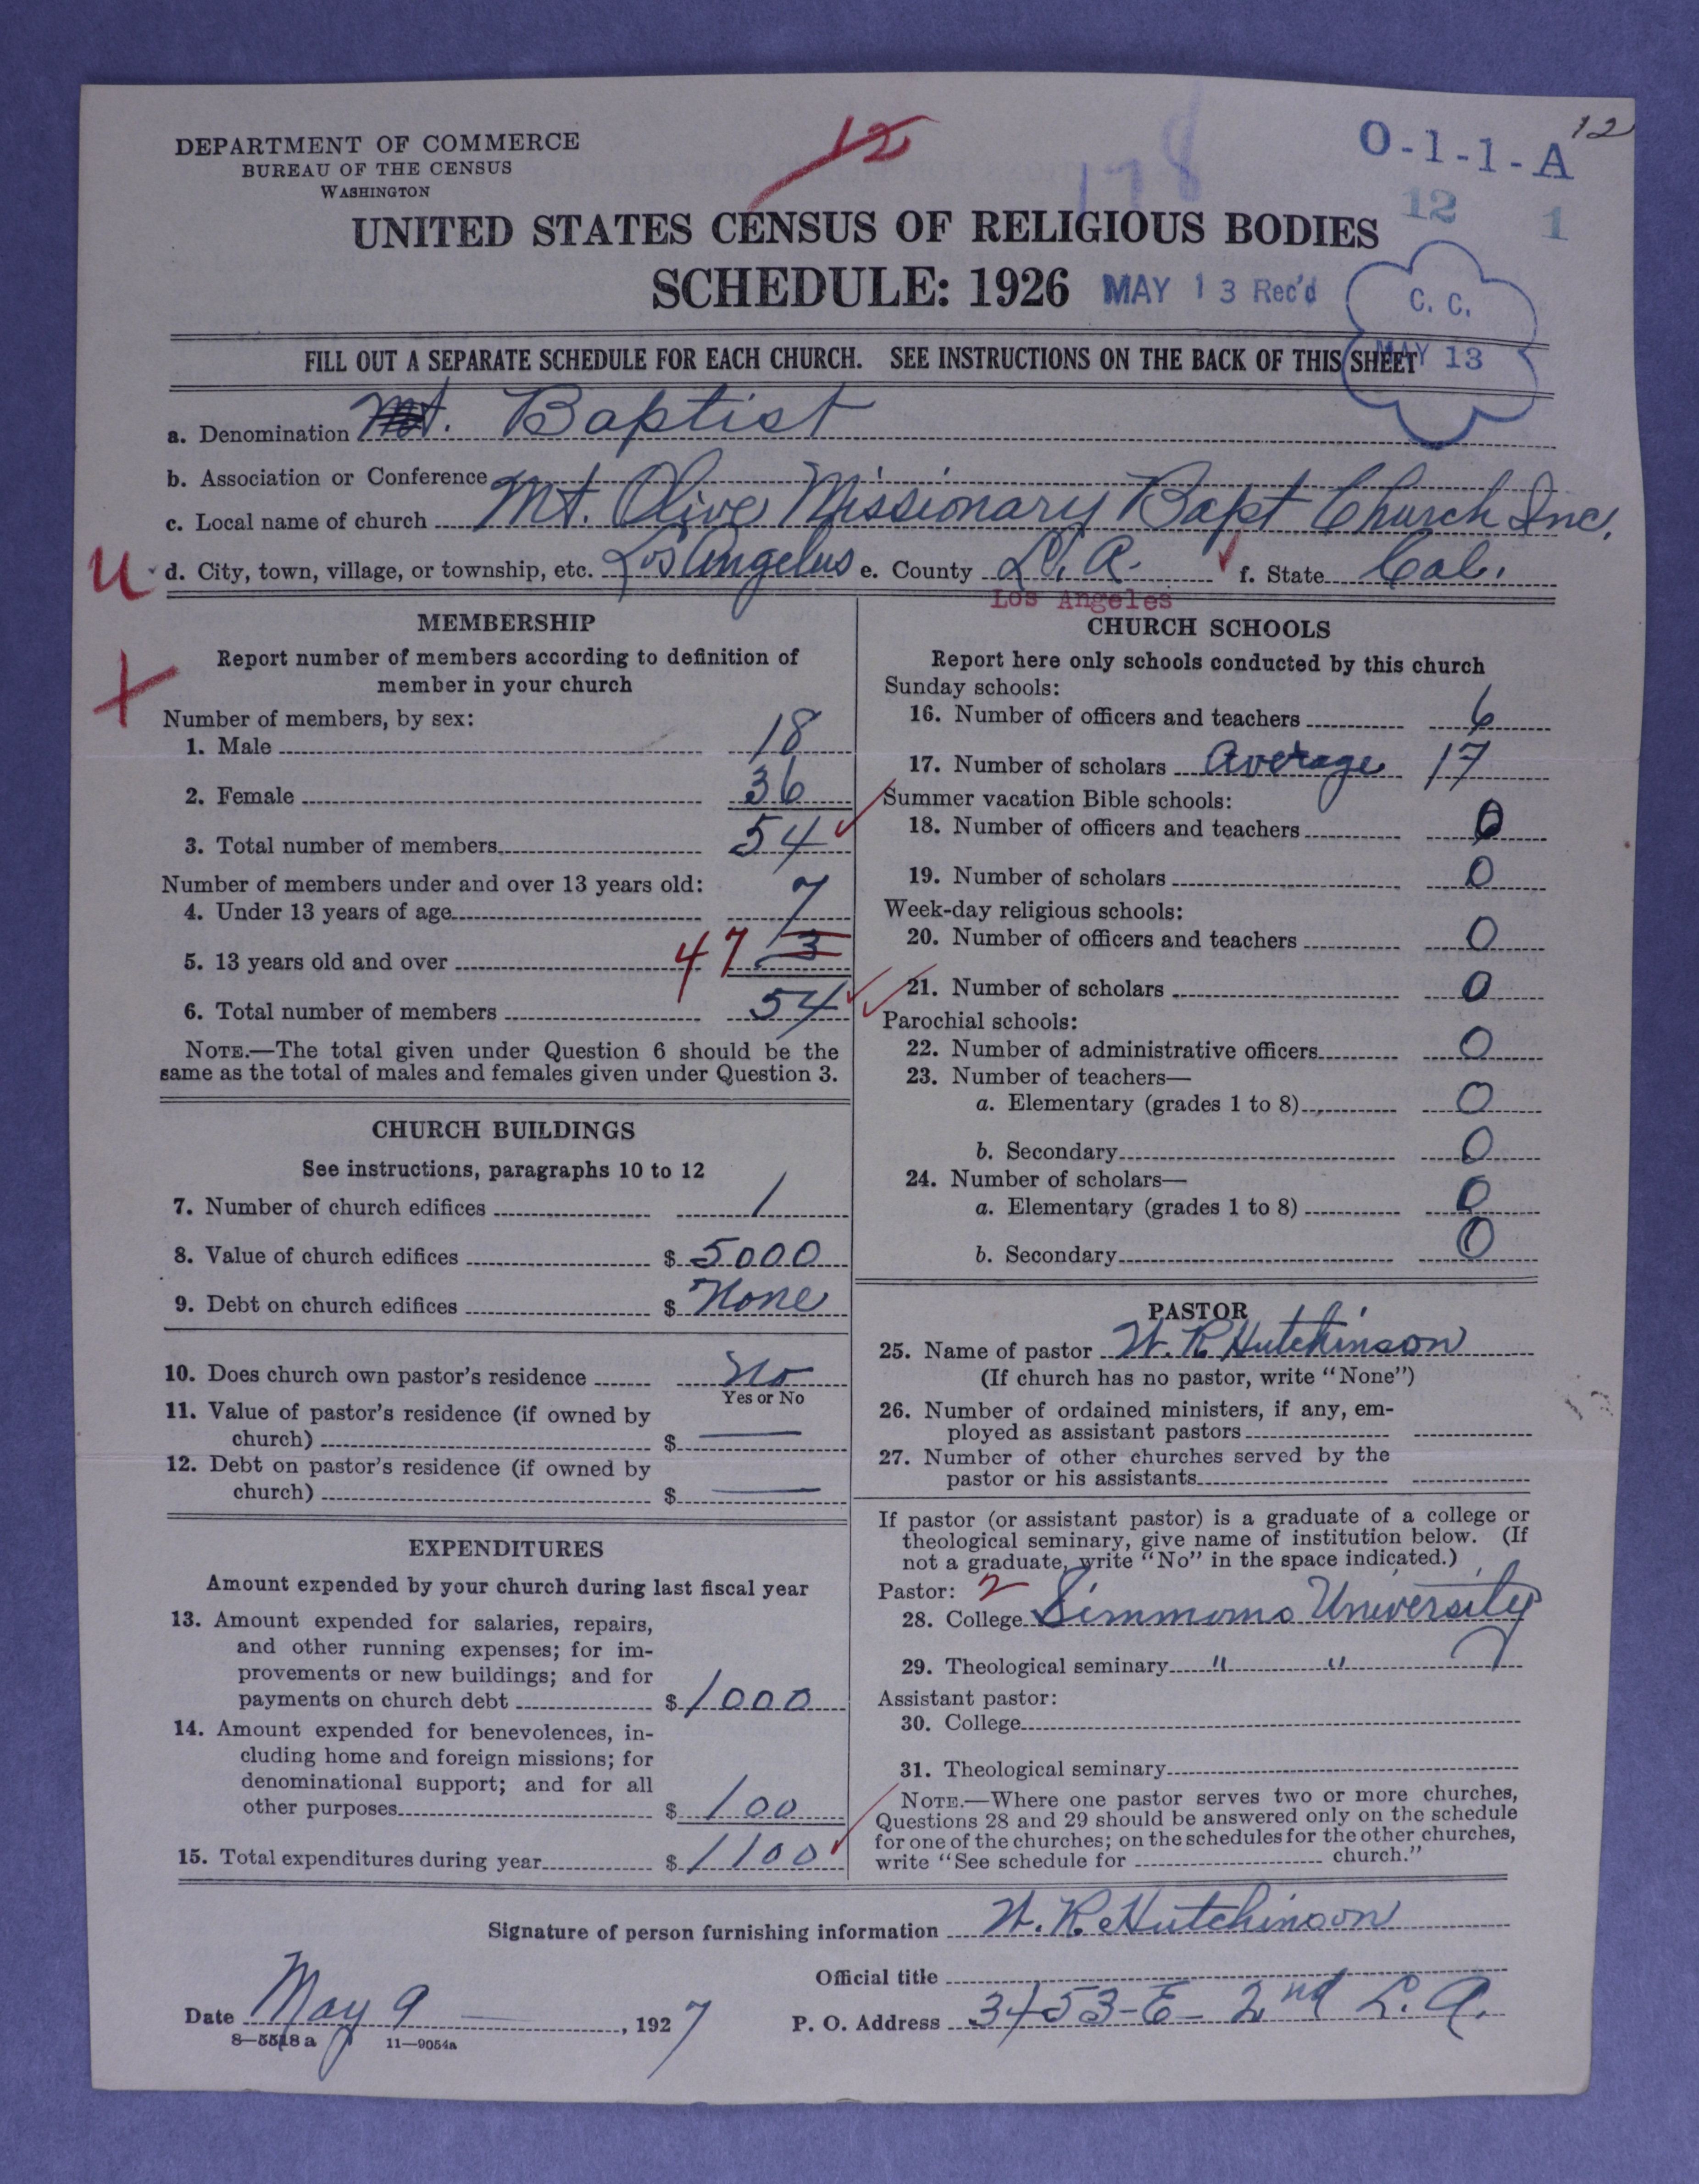 12
DEPARTMENT OF COMMERCE
BUREAU OF THE CENSUS
WASHINGTON
12
178
O-1-1-A
12 1
UNITED STATES CENSUS OF RELIGIOUS BODIES
SCHEDULE: 1926 MAY 13 Rec'd
C. C.
MAY 13
FILL OUT A SEPARATE SCHEDULE FOR EACH CHURCH. SEE INSTRUCTIONS ON THE BACK OF THIS SHEET
a. Denomination Mt. Baptist
b. Association or Conference
c. Local name of church Mt. Olive Missionary Bapt Church Inc.
u d. City, town, village, or township, etc. Los Angelus e. County L. A. f. State Cal.
Los Angeles
MEMBERSHIP
Report number of members according to definition of
member in your church
Number of members, by sex:
1. Male 18
2. Female 36
3. Total number of members 54
Number of members under and over 13 years old:
4. Under 13 years of age 7
5. 13 years old and over 47 3
6. Total number of members 54
NOTE.—The total given under Question 6 should be the
same as the total of males and females given under Question 3.
CHURCH BUILDINGS
See instructions, paragraphs 10 to 12
7. Number of church edifices 1
8. Value of church edifices $ 5000
9. Debt on church edifices $ None
10. Does church own pastor's residence No
Yes or No
11. Value of pastor's residence (if owned by
church) $ —
12. Debt on pastor's residence (if owned by
church) $ —
EXPENDITURES
Amount expended by your church during last fiscal year
13. Amount expended for salaries, repairs,
and other running expenses; for im-
provements or new buildings; and for
payments on church debt $ 1000
14. Amount expended for benevolences, in-
cluding home and foreign missions; for
denominational support; and for all
other purposes $ 100
15. Total expenditures during year $ 1100
CHURCH SCHOOLS
Report here only schools conducted by this church
Sunday schools:
16. Number of officers and teachers 6
17. Number of scholars Average 17
Summer vacation Bible schools:
18. Number of officers and teachers 0
19. Number of scholars 0
Week-day religious schools:
20. Number of officers and teachers 0
21. Number of scholars 0
Parochial schools:
22. Number of administrative officers 0
23. Number of teachers—
a. Elementary (grades 1 to 8) 0
b. Secondary 0
24. Number of scholars—
a. Elementary (grades 1 to 8) 0
b. Secondary 0
PASTOR
25. Name of pastor W. R. Hutchinson
(If church has no pastor, write "None")
26. Number of ordained ministers, if any, em-
ployed as assistant pastors
27. Number of other churches served by the
pastor or his assistants
If pastor (or assistant pastor) is a graduate of a college or
theological seminary, give name of institution below. (If
not a graduate, write "No" in the space indicated.)
Pastor: 2
28. College Simmoms University
29. Theological seminary " "
Assistant pastor:
30. College
31. Theological seminary
NOTE.—Where one pastor serves two or more churches,
Questions 28 and 29 should be answered only on the schedule
for one of the churches; on the schedules for the other churches,
write "See schedule for church."
Signature of person furnishing information W. R. Hutchinson
Official title
Date May 9 —, 1927 P. O. Address 3453-E- 2nd L. A.
8—5518 a 11—9054a